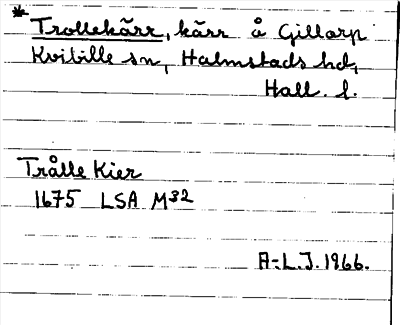 * Trollekärr, kärr å Gillarp
Kvibille sn, Halmstads hd,
Hall. l.
Trålle Kier
1675 LSA M32
A-L.J. 1966.